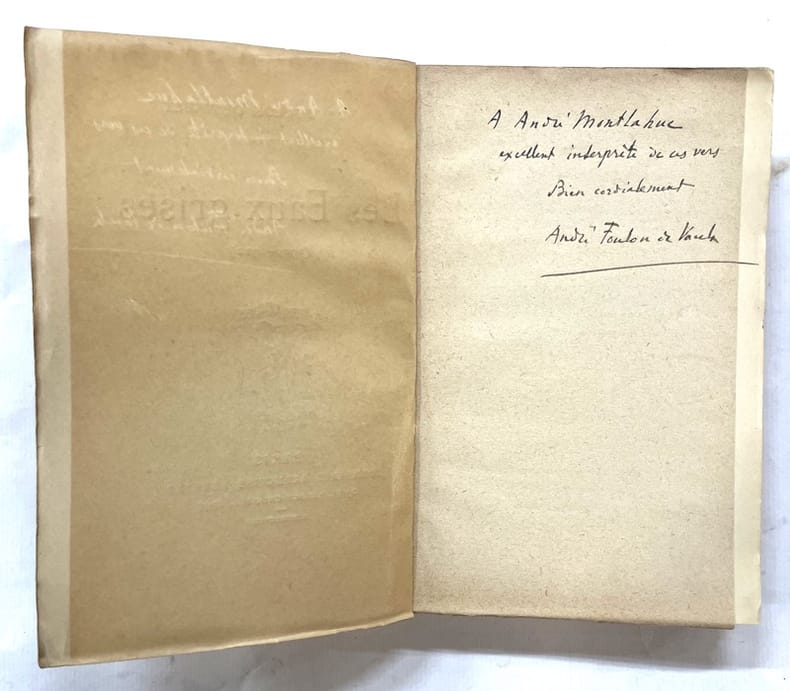 Les Eaux grises
A André Montlahuc
excellent interprète de ces vers
Bien cordialement
André Foulon de Vaulx